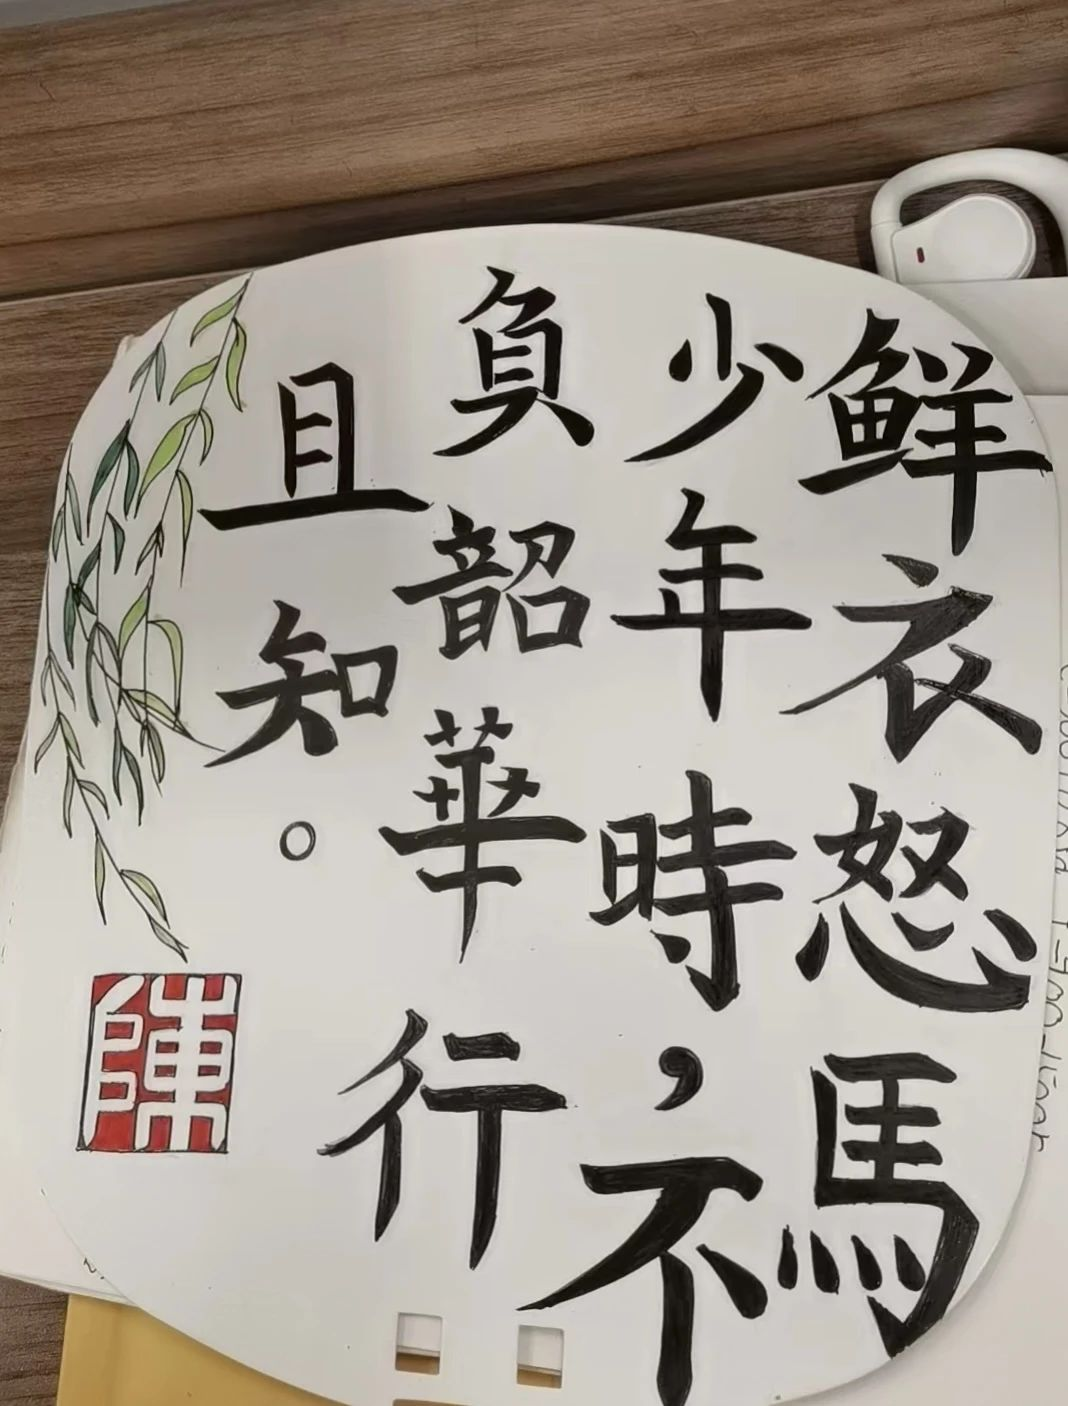 鮮衣怒馬
少年時，不
負韶華行
且知。
陳